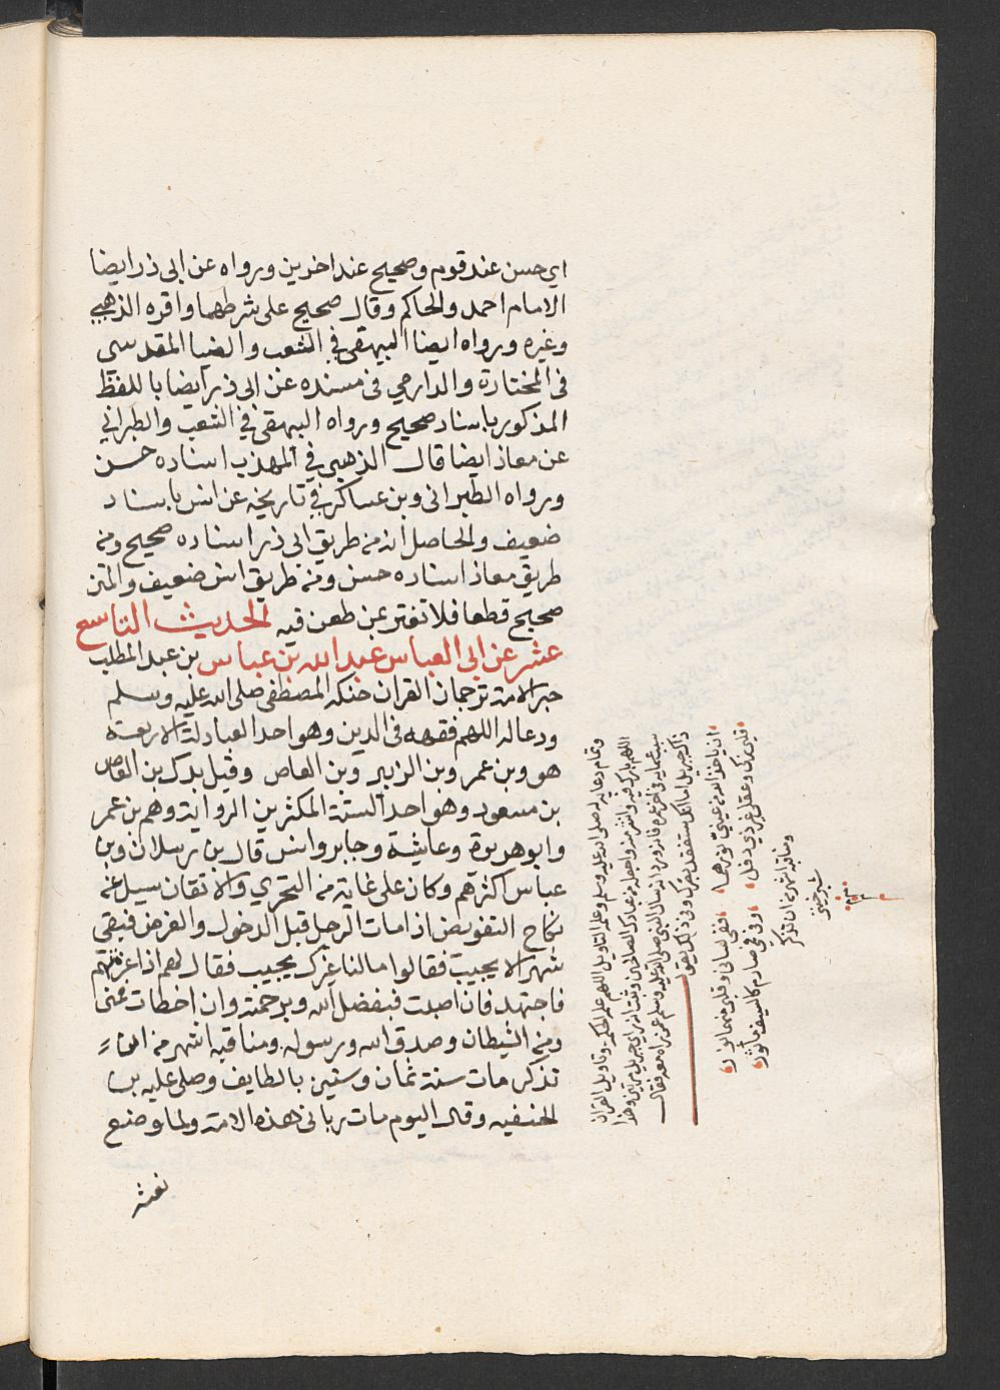 اي حسن عند قوم وصحيح عند اخرين ورواه عن ابي ذر ايضا
الامام احمد والحاكم وقال صحيح على شرطهما واقره الذهبي
وغيره ورواه ايضا البيهقي في الشعب والضيا المقدسي
في المختارة والدارمي في مسنده عن ابي ذر ايضا باللفظ
المذكور باسناد صحيح ورواه البيهقي في الشعب والطبراني
عن معاذ ايضا قال الذهبي في المهذب اسناده حسن
ورواه الطبراني وبن عساكر في تاريخه عن انس باسناد
ضعيف والحاصل انه من طريق ابي ذر اسناده صحيح ومن
طريق معاذ اسناده حسن ومن طريق انس ضعيف والمتن
صحيح قطعا فلا تغتر بمن طعن فيه الحديث التاسع
عشر عن ابي العباس عبد الله بن عباس بن عبد المطلب
حبر الامة ترجمان القران حنكه المصطفى صلى الله عليه وسلم
ودعا له اللهم فقهه في الدين وهو احد العبادلة الاربعة
هو وبن عمر وبن الزبير وبن العاص وقيل بدل بن العاص
بن مسعود وهو احد الستة المكثرين الرواية وهم بن عمر
وابو هريرة وعايشة وجابر وانس قال بن رسلان وبن
عباس اكثرهم وكان على غاية من التحري والاتقان سيل عن
نكاح التفويض اذا مات الرجل قبل الدخول والفرض فبقي
شهرا لا يجيب فقالوا ما لنا غيرك يجيب فقال لهم اذا عزمتم
فاجتهد فان اصبت فبفضل الله وبرحمته وان اخطات فمني
ومن الشيطان وصدق الله ورسوله ومناقبه اشهر من ان
تذكر مات سنة ثمان وستين بالطايف وصلى عليه بن
الحنفيه وقال اليوم مات رباني هذه الامة ولما وضع
نعشه
وتمام دعايه له صلى الله عليه وسلم وعلمه التاويل اللهم علمه الحكمة وتاويل القران
اللهم بارك فيه وانشر منه واجعله من عبادك الصالحين
ان ياخذ الله من عيني نورهما ففي لساني وقلبي منهما نور
قلبي ذكي وعقلي غير ذي دخل وفي فمي صارم كالسيف ماثور
ومناقبه اشهر من ان تذكر
شبرخيتي